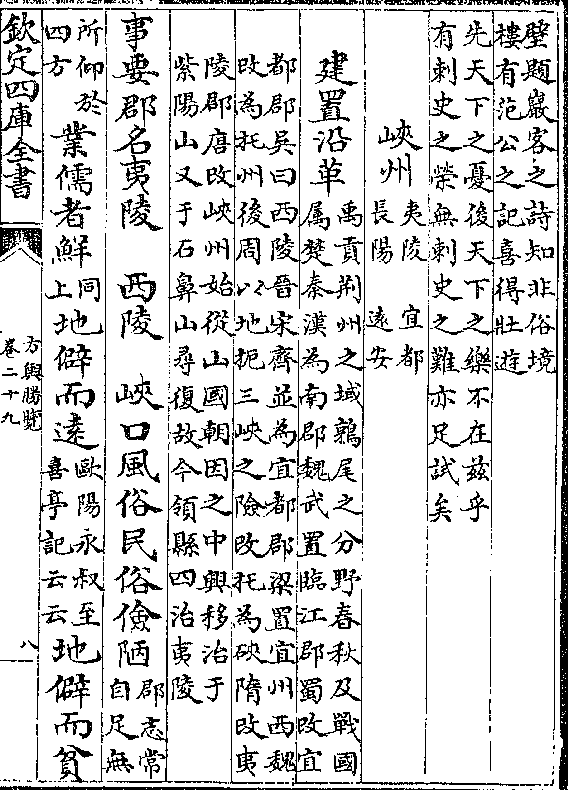 壁題巖客之詩知非俗境
樓有范公之記喜得壯遊
先天下之憂後天下之樂不在兹乎
有刺史之榮無刺史之難亦足試矣
峽州 夷陵 宜都
長陽 遠安
建置沿革 禹貢荆州之域鶉尾之分野春秋及戰國
属楚秦漢為南郡魏武置臨江郡蜀改宜
都郡吳曰西陵晉宋齊並為宜都郡梁置宜州西魏
改為托州後周以地扼三峽之險改托為硤隋改夷
陵郡唐改峽州始從山國朝因之中興移治于
紫陽山又于石鼻山尋復故今領縣四治夷陵
事要郡名夷陵 西陵 峽口風俗民俗儉陋 郡志常
自足無
所仰於
四方 業儒者鮮 同
上 地僻而遠 歐陽永叔至
喜亭記云云 地僻而貧
欽定四庫全書
方輿勝覽
卷二十九
八